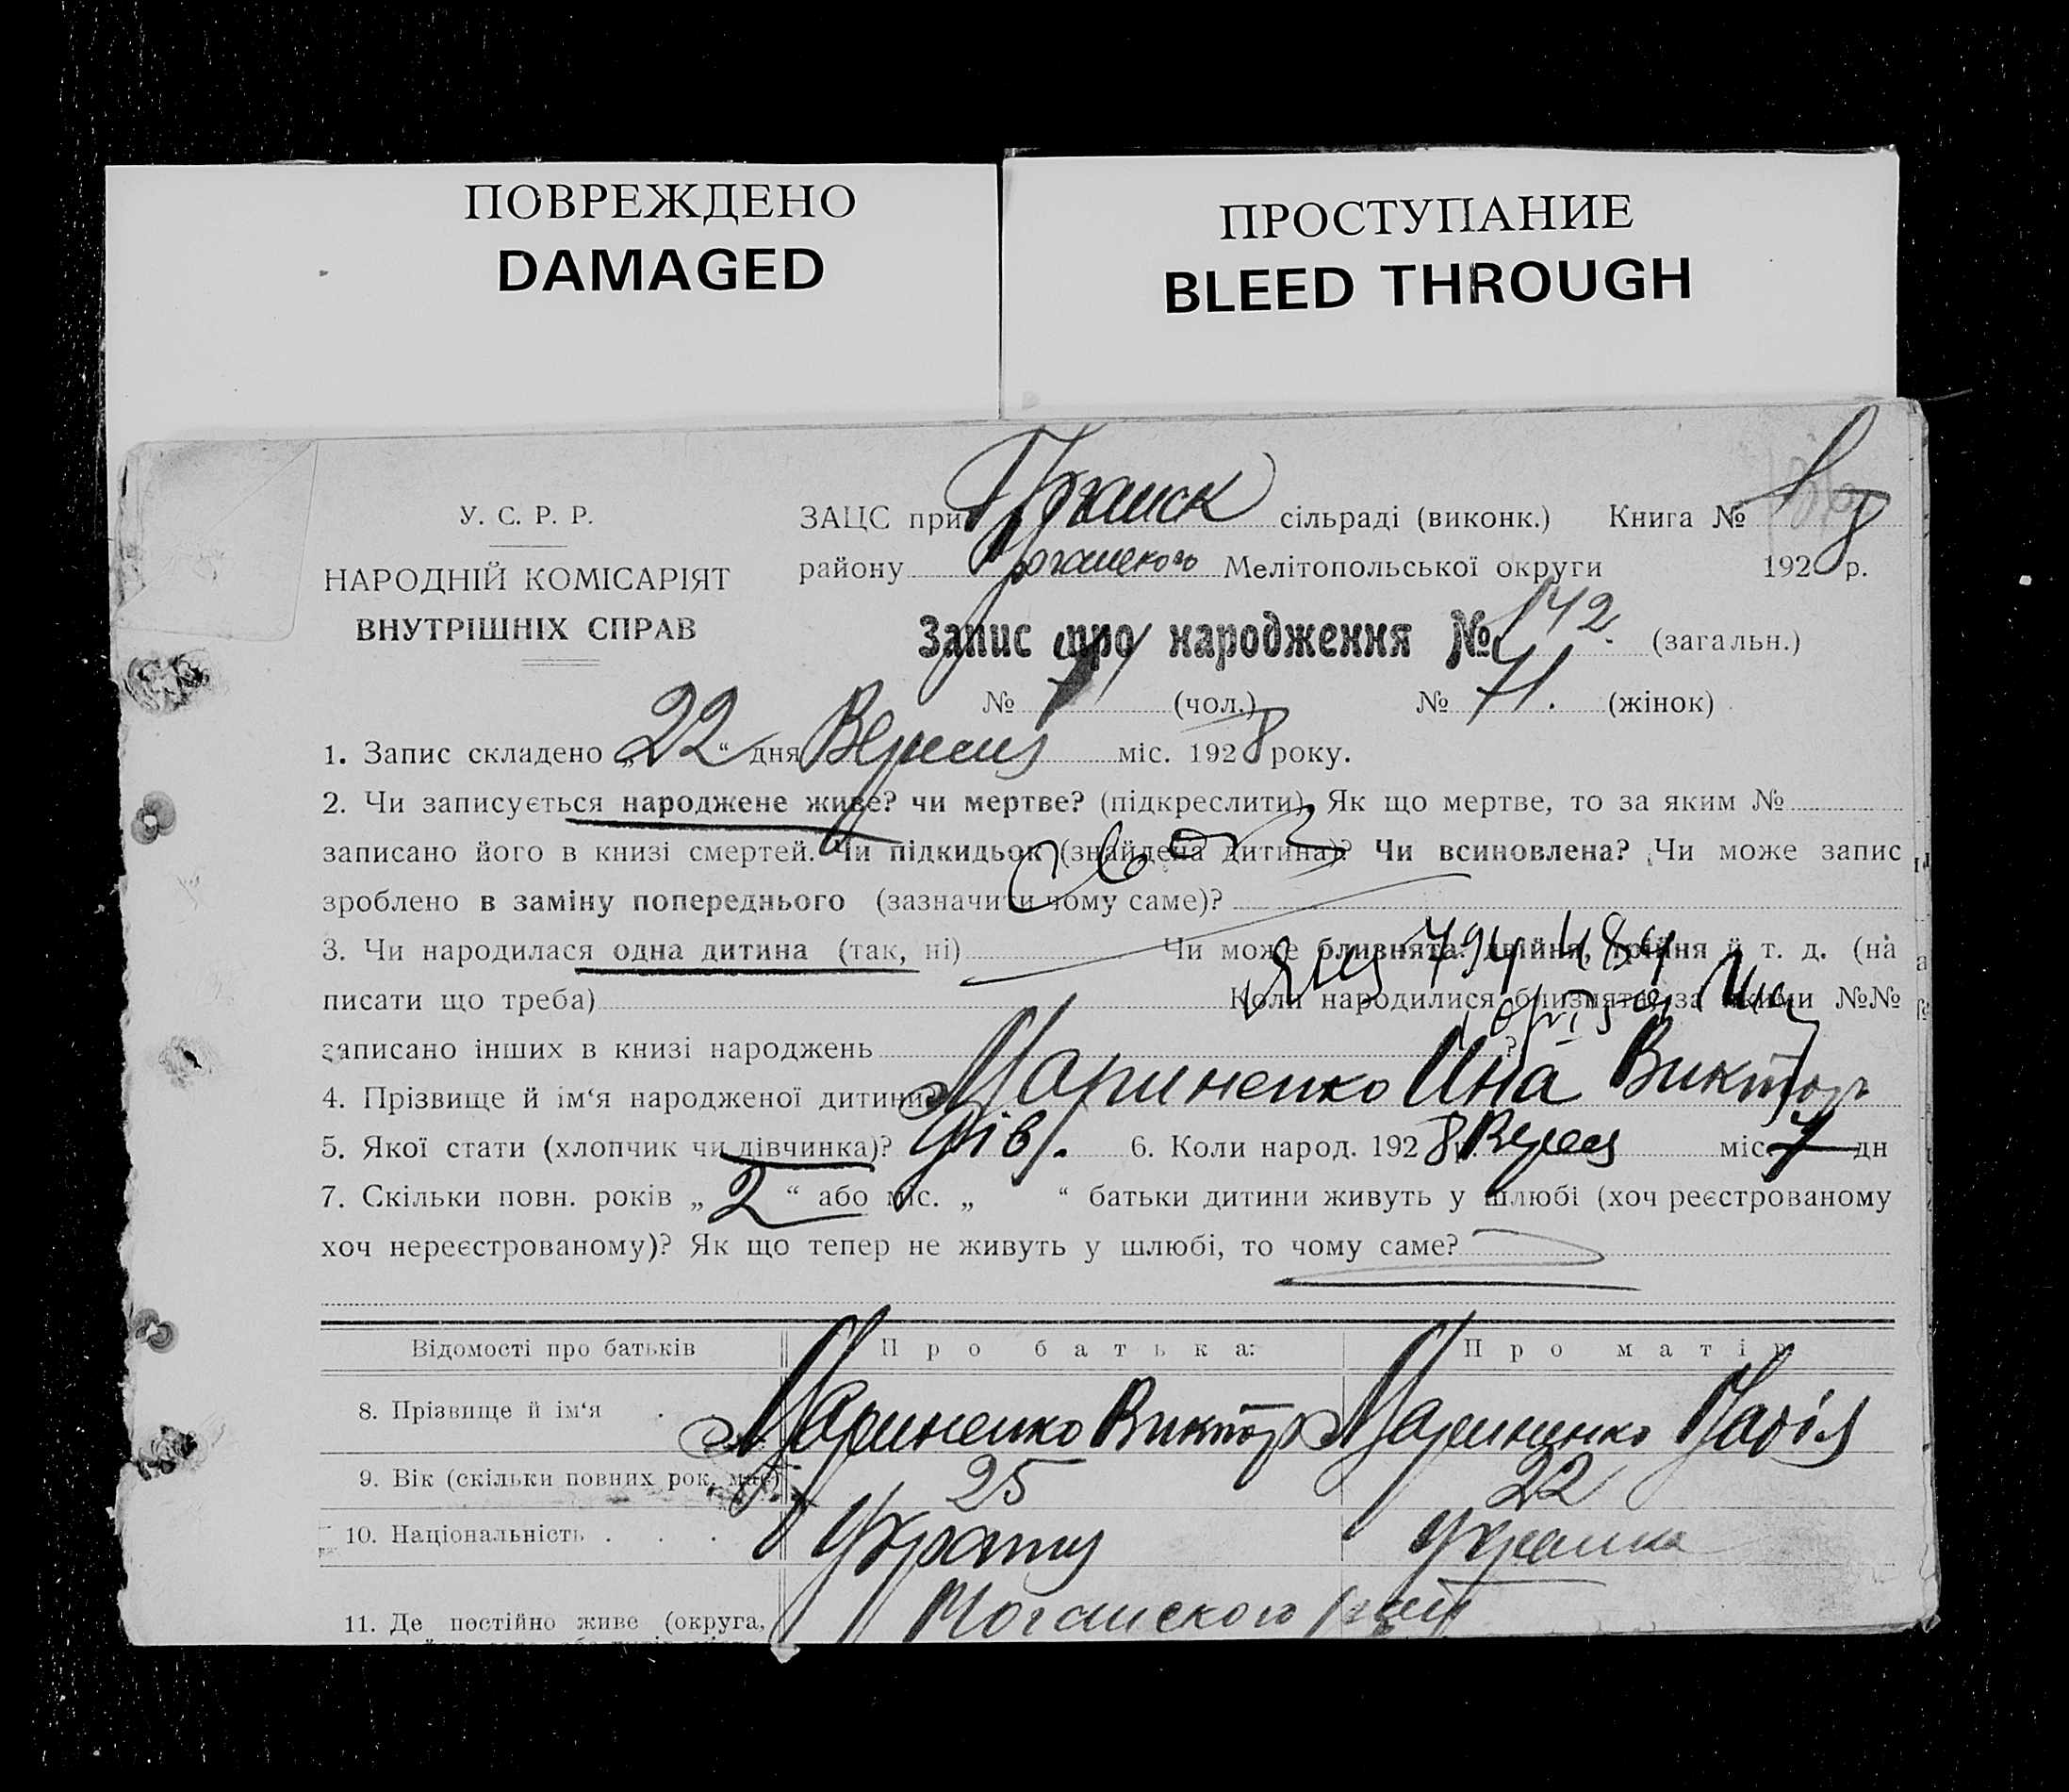 ПОВРЕЖДЕНО
DAMAGED
ПРОСТУПАНИЕ
BLEED THROUGH
У. С. Р. Р.
НАРОДНІЙ КОМІСАРІЯТ
ВНУТРІШНІХ СПРАВ
ЗАЦС при сільраді (виконк.) Книга №
району Мелітопольської округи 1928 р.
Запис про народження № 142. (загальн.)
№ (чол.) № 71. (жінок)
1. Запис складено „22“ дня Вересня міс. 1928 року.
2. Чи записується народжене живе? чи мертве? (підкреслити). Як що мертве, то за яким №
записано його в книзі смертей. Чи підкидьок (знайдена дитина)? Чи всиновлена? Чи може запис
зроблено в заміну попереднього (зазначити чому саме)?
3. Чи народилася одна дитина (так, ні) Чи може близнята: двійня, трійня й т. д. (на
писати що треба) Коли народилися близнята, за якими №№
записано інших в книзі народжень ?
4. Прізвище й ім‘я народженої дитини Мариненко Инá Виктор
5. Якої стати (хлопчик чи дівчинка)? Дів. 6. Коли народ. 1928 р. Верес міс. 7 дн
7. Скільки повн. років „2“ або міс. „ “ батьки дитини живуть у шлюбі (хоч реєстрованому
хоч нереєстрованому)? Як що тепер не живуть у шлюбі, то чому саме?
Відомості про батьків Про батька: Про матір
8. Прізвище й ім‘я Мариненко Виктор Мариненко
9. Вік (скільки повних рок. має) 25 22
10. Національність Українка
11. Де постійно живе (округа,